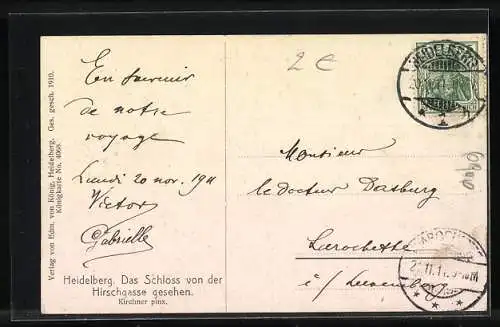 Verlag von Edm. von König, Heidelberg. Ges. gesch. 1910.
Königkarte No. 4068.
En souvenir
de notre
voyage
Lundi 20 nov. 1911
Victor
Gabrielle
Heidelberg. Das Schloss von der
Hirschgasse gesehen.
Kirchner pinx.
2 €
HEIDELBERG
Monsieur
le docteur Dasburg
Larochette
i/ Luxembourg
LAROCHETTE
21.11.11